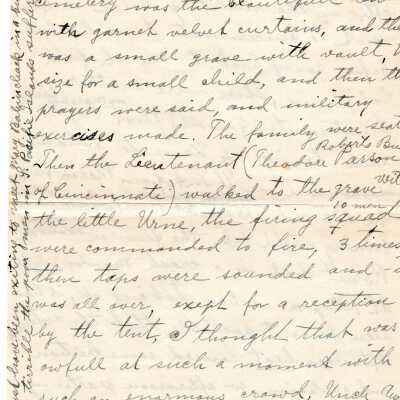 cemetery was the beautifull
with garnet velvet curtains, and the
was a small grave with vault,
size for a small child, and then th
prayers were said, and military
exercises made. The family were seat
Roberts Bu
Then the Lieutenant (Theodore Parson
of Cincinnati) walked to the grave with
10 men
the little Urne, the firing squad
were commanded to fire, 3 times
then taps were sounded and
was all over, exept for a reception
by the tent, I thought that was
owfull at such a moment with
such an enormous crowd, Uncle
have been exciting to meet
terrible the poor men in S. Pacific islands suffer